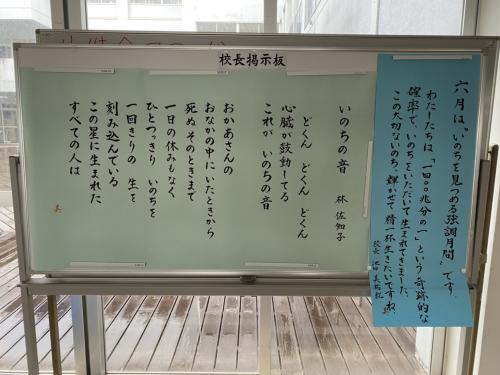 校長掲示板
六月は、“いのちを見つめる強調月間”です。
わたしたちは、「一四〇〇兆分の一」という奇跡的な
確率で、いのちをいただいて生まれてきました。
この大切ないのち、輝かせて精一杯生きたいですね。
校長 池田
いのちの音 林 佐知子
どくん どくん どくん
心臓が鼓動してる
これが いのちの音
おかあさんの
おなかの中に いたときから
死ぬ そのときまで
一日の休みもなく
ひとつっきり いのちを
一回きりの 生を
刻み込んでいる
この星に生まれた
すべての人は